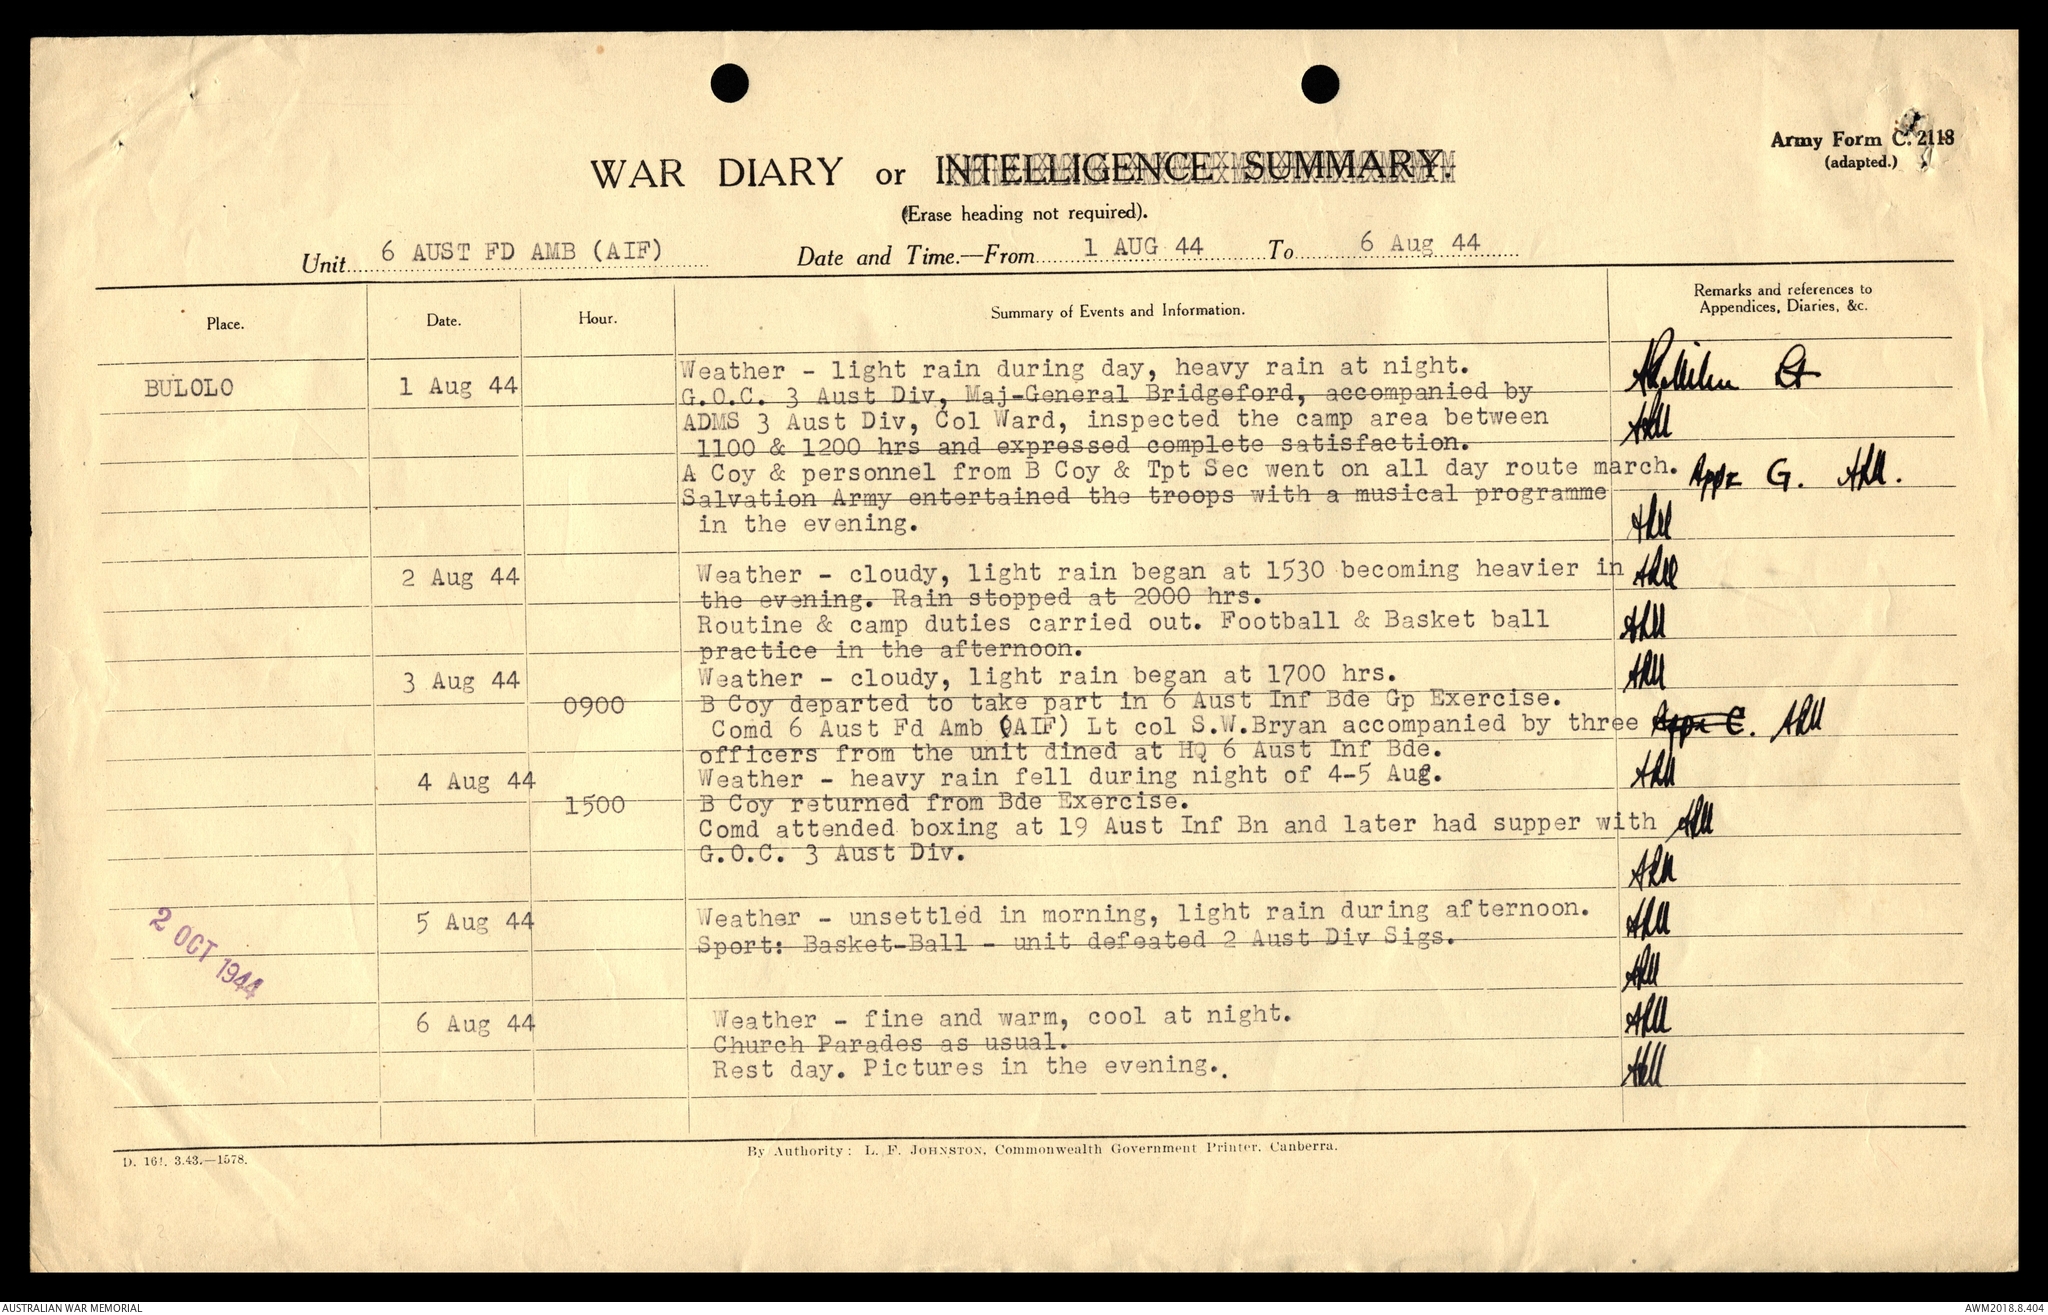 Army Form C. 2118
(adapted.)
WAR DIARY or INTELLIGENCE SUMMARY.
(Erase heading not required).
Unit 6 AUST FD AMB (AIF) Date and Time.—From 1 AUG 44 To 6 Aug 44
Place. Date. Hour. Summary of Events and Information. Remarks and references to
Appendices, Diaries, &c.
BULOLO 1 Aug 44 Weather - light rain during day, heavy rain at night. Lt
G.O.C. 3 Aust Div, Maj-General Bridgeford, accompanied by
ADMS 3 Aust Div, Col Ward, inspected the camp area between
1100 & 1200 hrs and expressed complete satisfaction.
A Coy & personnel from B Coy & Tpt Sec went on all day route march. Appx G.
Salvation Army entertained the troops with a musical programme
in the evening.
2 Aug 44 Weather - cloudy, light rain began at 1530 becoming heavier in
the evening. Rain stopped at 2000 hrs.
Routine & camp duties carried out. Football & Basket ball
practice in the afternoon.
3 Aug 44 Weather - cloudy, light rain began at 1700 hrs.
0900 B Coy departed to take part in 6 Aust Inf Bde Gp Exercise.
Comd 6 Aust Fd Amb (AIF) Lt col S.W.Bryan accompanied by three
officers from the unit dined at HQ 6 Aust Inf Bde.
4 Aug 44 Weather - heavy rain fell during night of 4-5 Aug.
1500 B Coy returned from Bde Exercise.
Comd attended boxing at 19 Aust Inf Bn and later had supper with
G.O.C. 3 Aust Div.
5 Aug 44 Weather - unsettled in morning, light rain during afternoon.
Sport: Basket-Ball - unit defeated 2 Aust Div Sigs.
2 OCT 1944
6 Aug 44 Weather - fine and warm, cool at night.
Church Parades as usual.
Rest day. Pictures in the evening..
D. 161. 3.43.—1578.
By Authority: L. F. JOHNSTON, Commonwealth Government Printer, Canberra.
AUSTRALIAN WAR MEMORIAL AWM2018.8.404